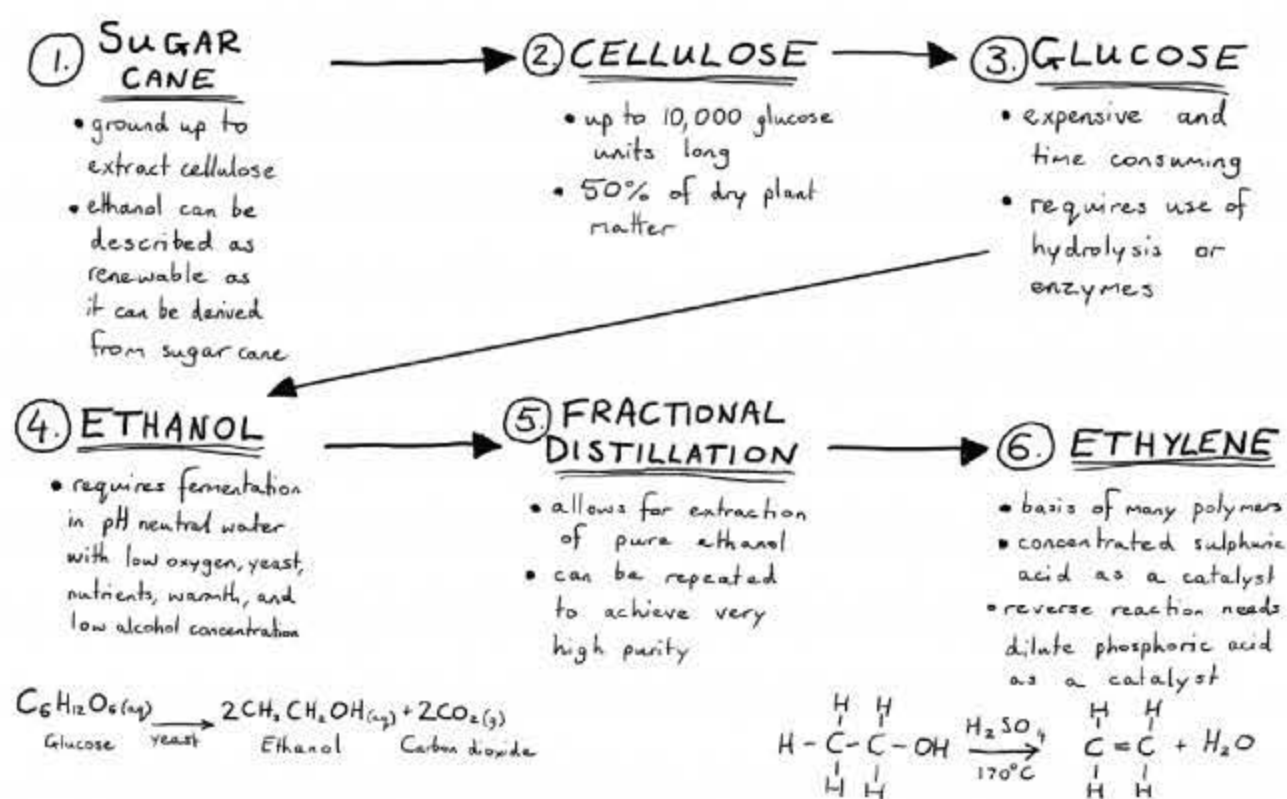 1. SUGAR
CANE
• ground up to
extract cellulose
• ethanol can be
described as
renewable as
it can be derived
from sugar cane
2. CELLULOSE
• up to 10,000 glucose
units long
• 50% of dry plant
matter
3. GLUCOSE
• expensive and
time consuming
• requires use of
hydrolysis or
enzymes
4. ETHANOL
• requires fermentation
in pH neutral water
with low oxygen, yeast,
nutrients, warmth, and
low alcohol concentration
5. FRACTIONAL
DISTILLATION
• allows for extraction
of pure ethanol
• can be repeated
to achieve very
high purity
6. ETHYLENE
• basis of many polymers
• concentrated sulphuric
acid as a catalyst
• reverse reaction needs
dilute phosphoric acid
as a catalyst
C₆H₁₂O₆(aq) → 2CH₃CH₂OH(aq) + 2CO₂(g)
Glucose yeast Ethanol Carbon dioxide
H H H₂SO₄ H H
H - C - C - OH → C = C + H₂O
H H 170°C H H